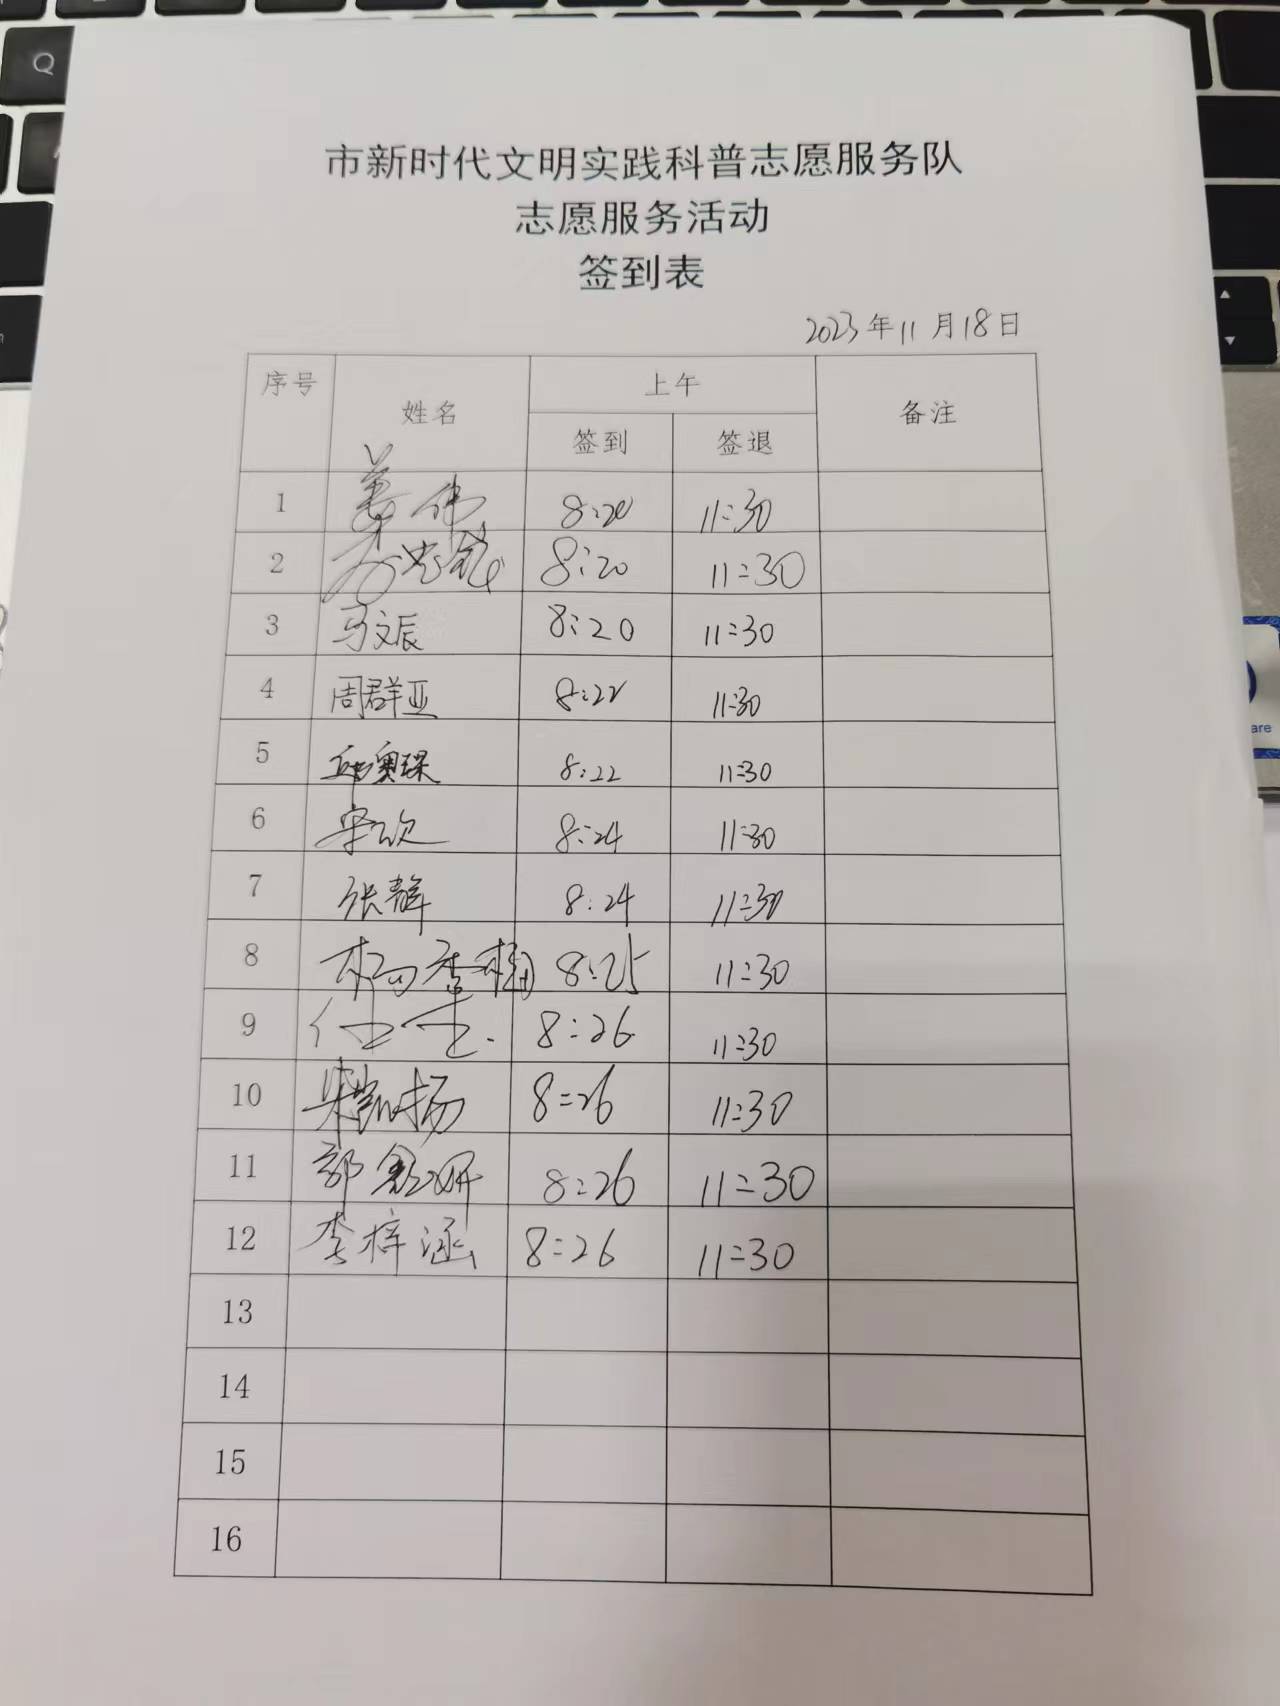 市新时代文明实践科普志愿服务队
志愿服务活动
签到表
2023年11月18日
序号 姓名 上午 备注
签到 签退
1 姜伟 8:20 11:30
2 8:20 11:30
3 马文辰 8:20 11:30
4 周群亚 8:22 11:30
5 奥琛 8:22 11:30
6 宋欣 8:24 11:30
7 张静 8:24 11:30
8 杨季楠 8:25 11:30
9 8:26 11:30
10 朱凯扬 8:26 11:30
11 郭 妍 8:26 11:30
12 李梓涵 8:26 11:30
13
14
15
16
Q
are